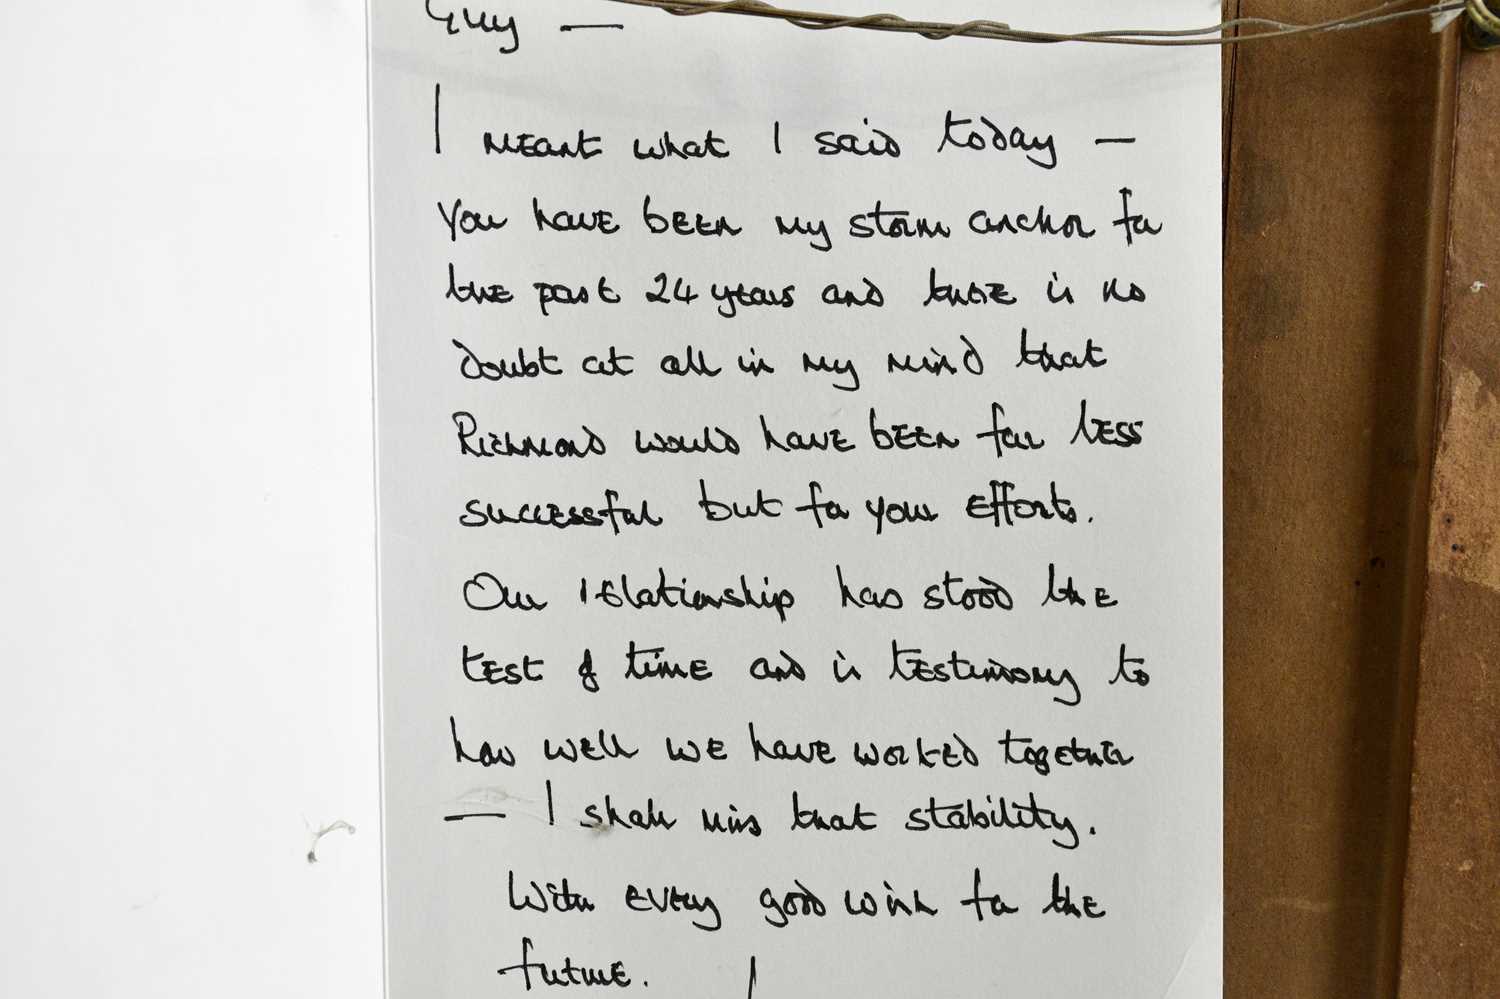 Guy —
I meant what I said today —
You have been my storm anchor for
the past 24 years and there is no
doubt at all in my mind that
Richmond would have been far less
successful but for your efforts.
Our relationship has stood the
test of time and is testimony to
how well we have worked together
— I shall miss that stability.
With every good wish for the
future.